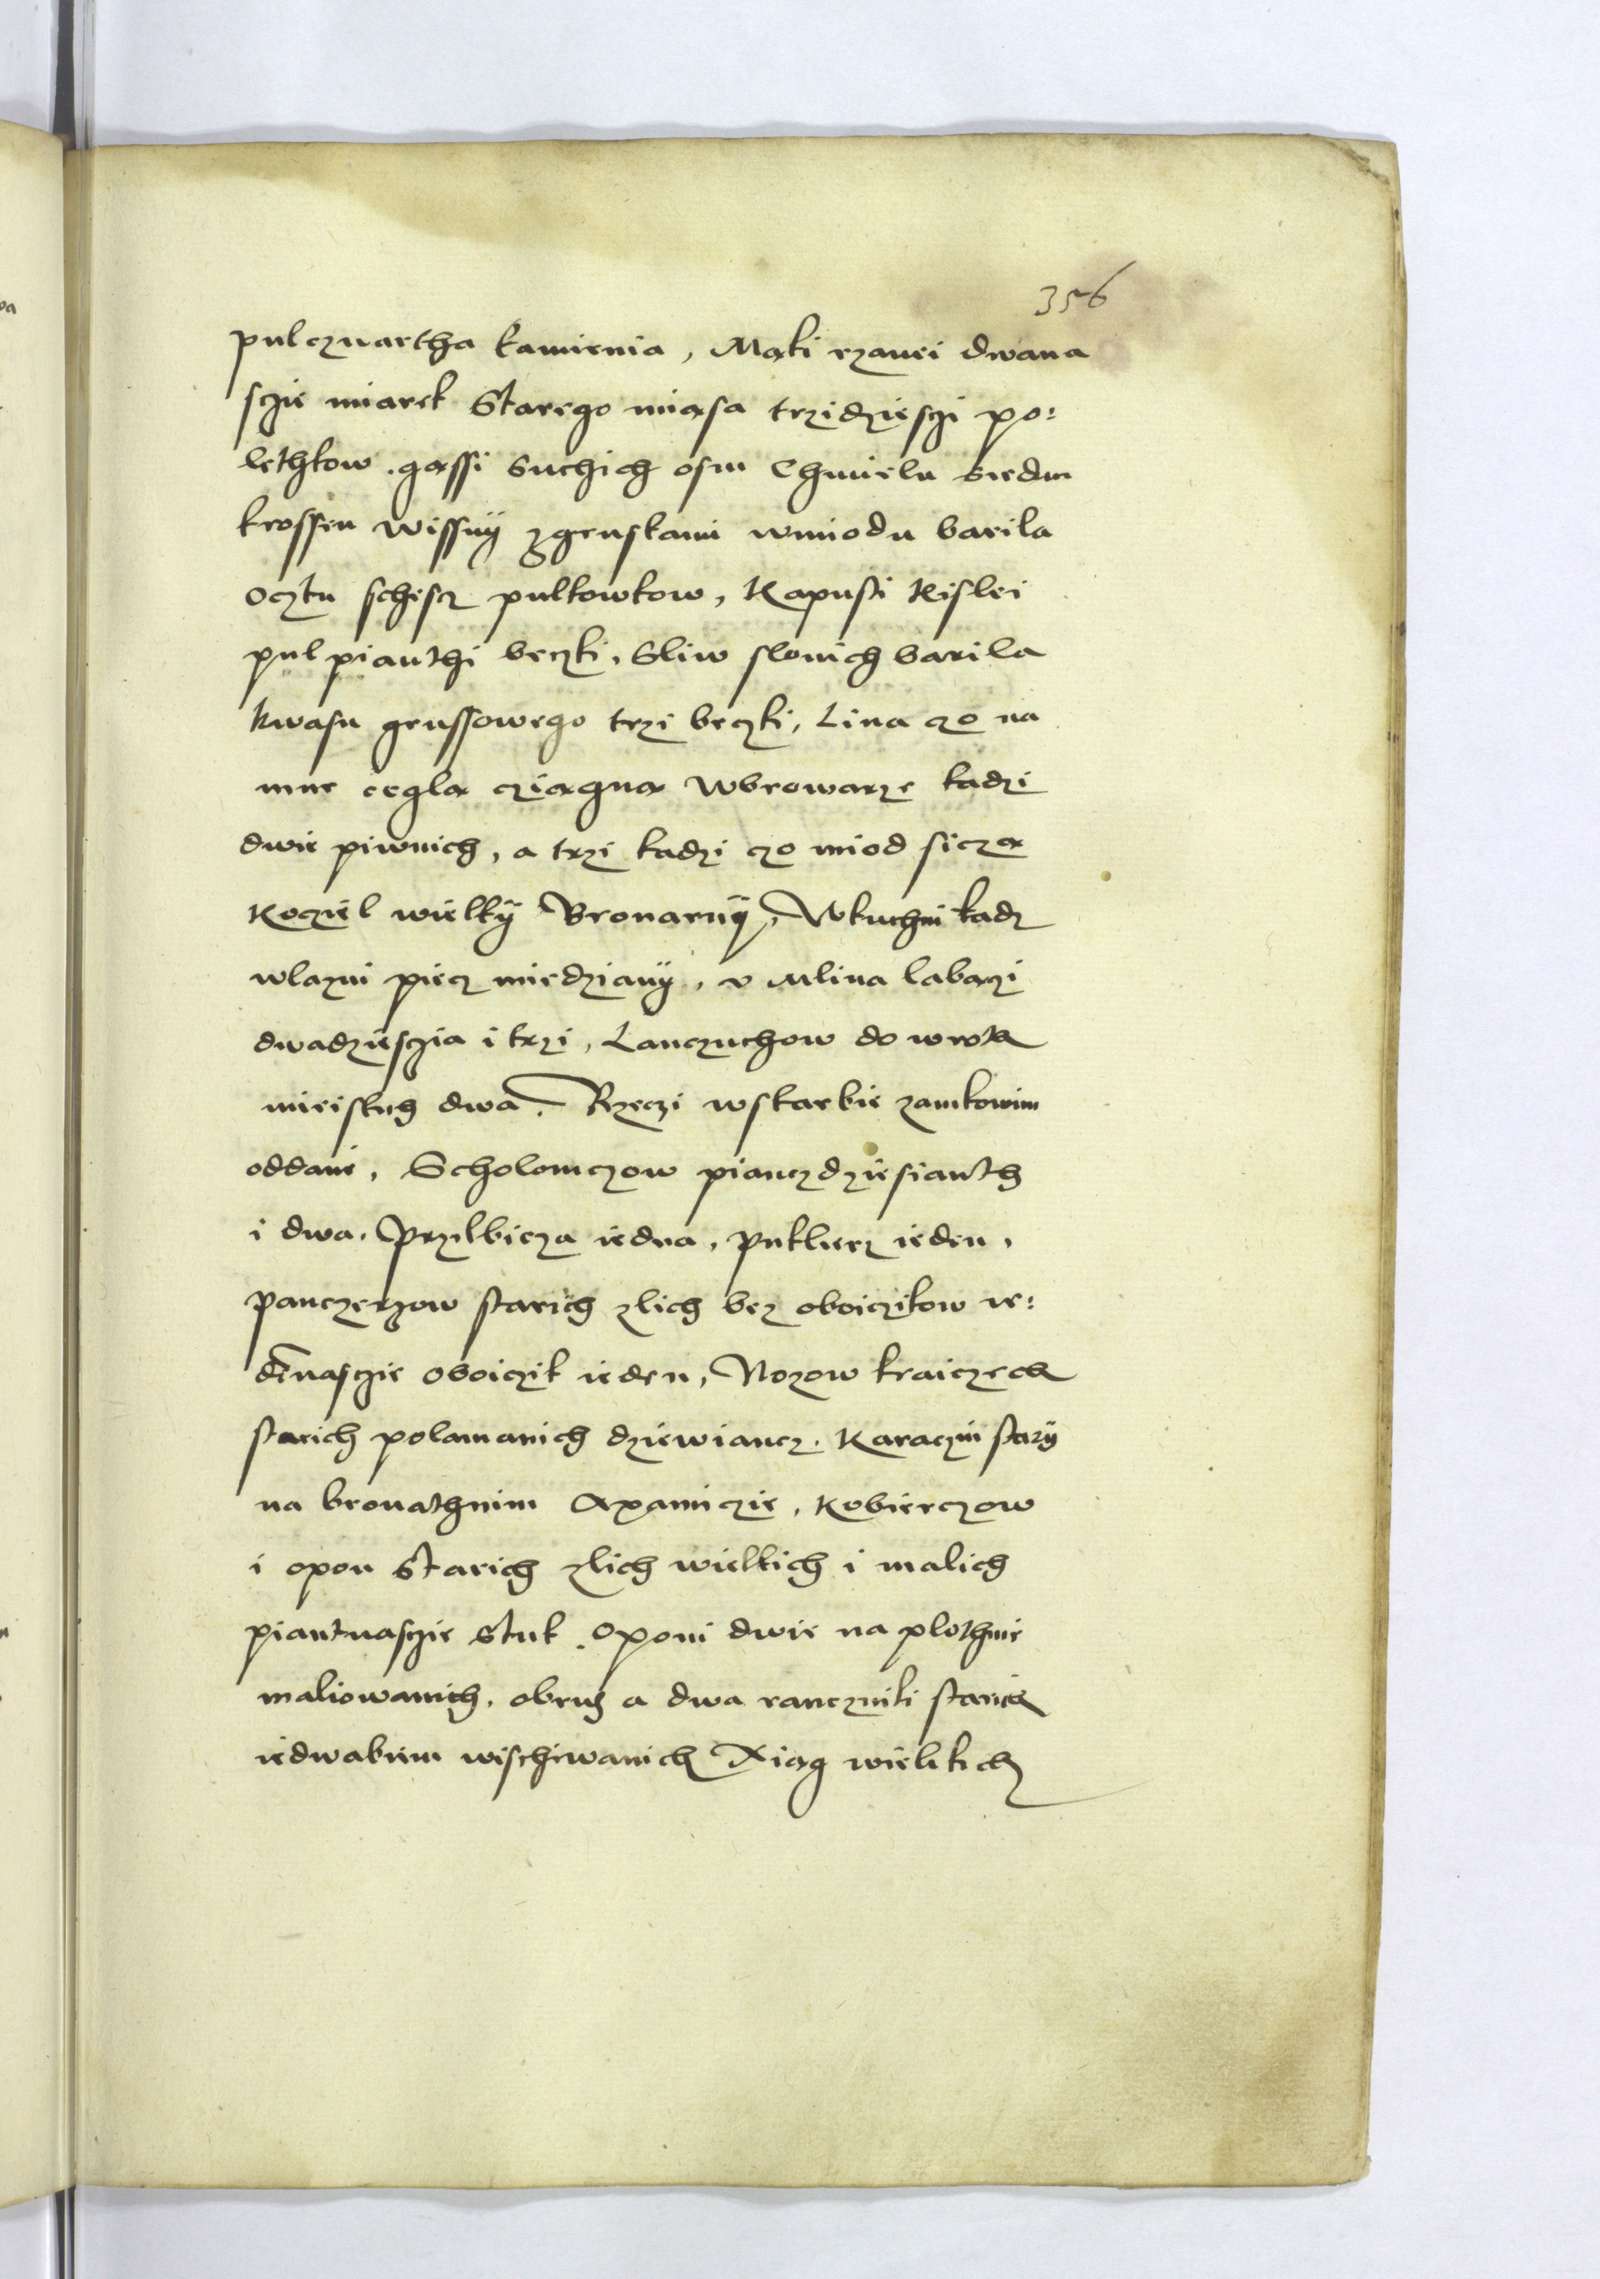 356
pulczwartha kamienia, Mąki rzanei dwana
sczie miarek Starego miąsa trzidziesczi po:
lethkow. gąssi Suchich osm Chmielu siedm
krossen Wissny zgruskami wmiodu barila
Ocztu schescz pulkowkow, Kapusti Kislei
pul pianthi beczki, Sliw slonich barila
kwasu grussowego trzi beczki, Lina czo na
mur ceglą cziągną Wbrowarze kadzi
dwie piwnich, a trzi kadzi czo miod siczą
Kocziel wielky Bronarny, Wkuchni kadz
wlazni piecz miedziany, v Mlina labaczi
dwadziesczia i trzi, Lanczuchow do wroth
mieiskich dwa. Rzeczi wskarbie zamkowim
oddane, Scholomczow pianczdziesianth
i dwa, Przilbicza iedna, Puklierz ieden,
Panczerzow starich zlich bez oboiczikow ie:
denasczie Oboiczik ieden, Nozow kraiczech
starich polamanich dziewiancz. Karaczin stary
na brunathnim Axamiczie, Kobierczow
i opon Starich zlich wielkich i malich
piantnasczie Stuk. Oponi dwie na plothnie
maliowanich, obrus a dwa ranczniki starich
iedwabiem wischiwanich Xiąg wielkich